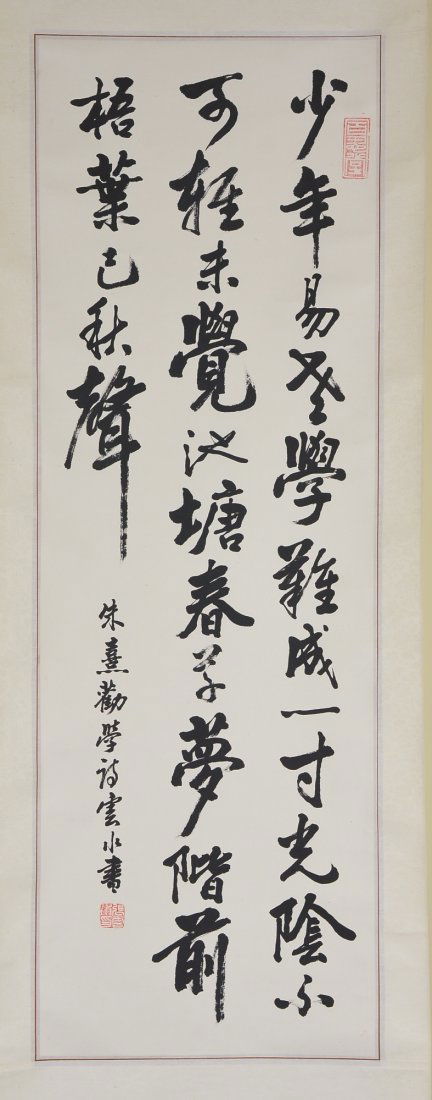 少年易老學難成一寸光陰不
可輕未覺池塘春草夢階前
梧葉已秋聲
朱熹勸學詩雲水書